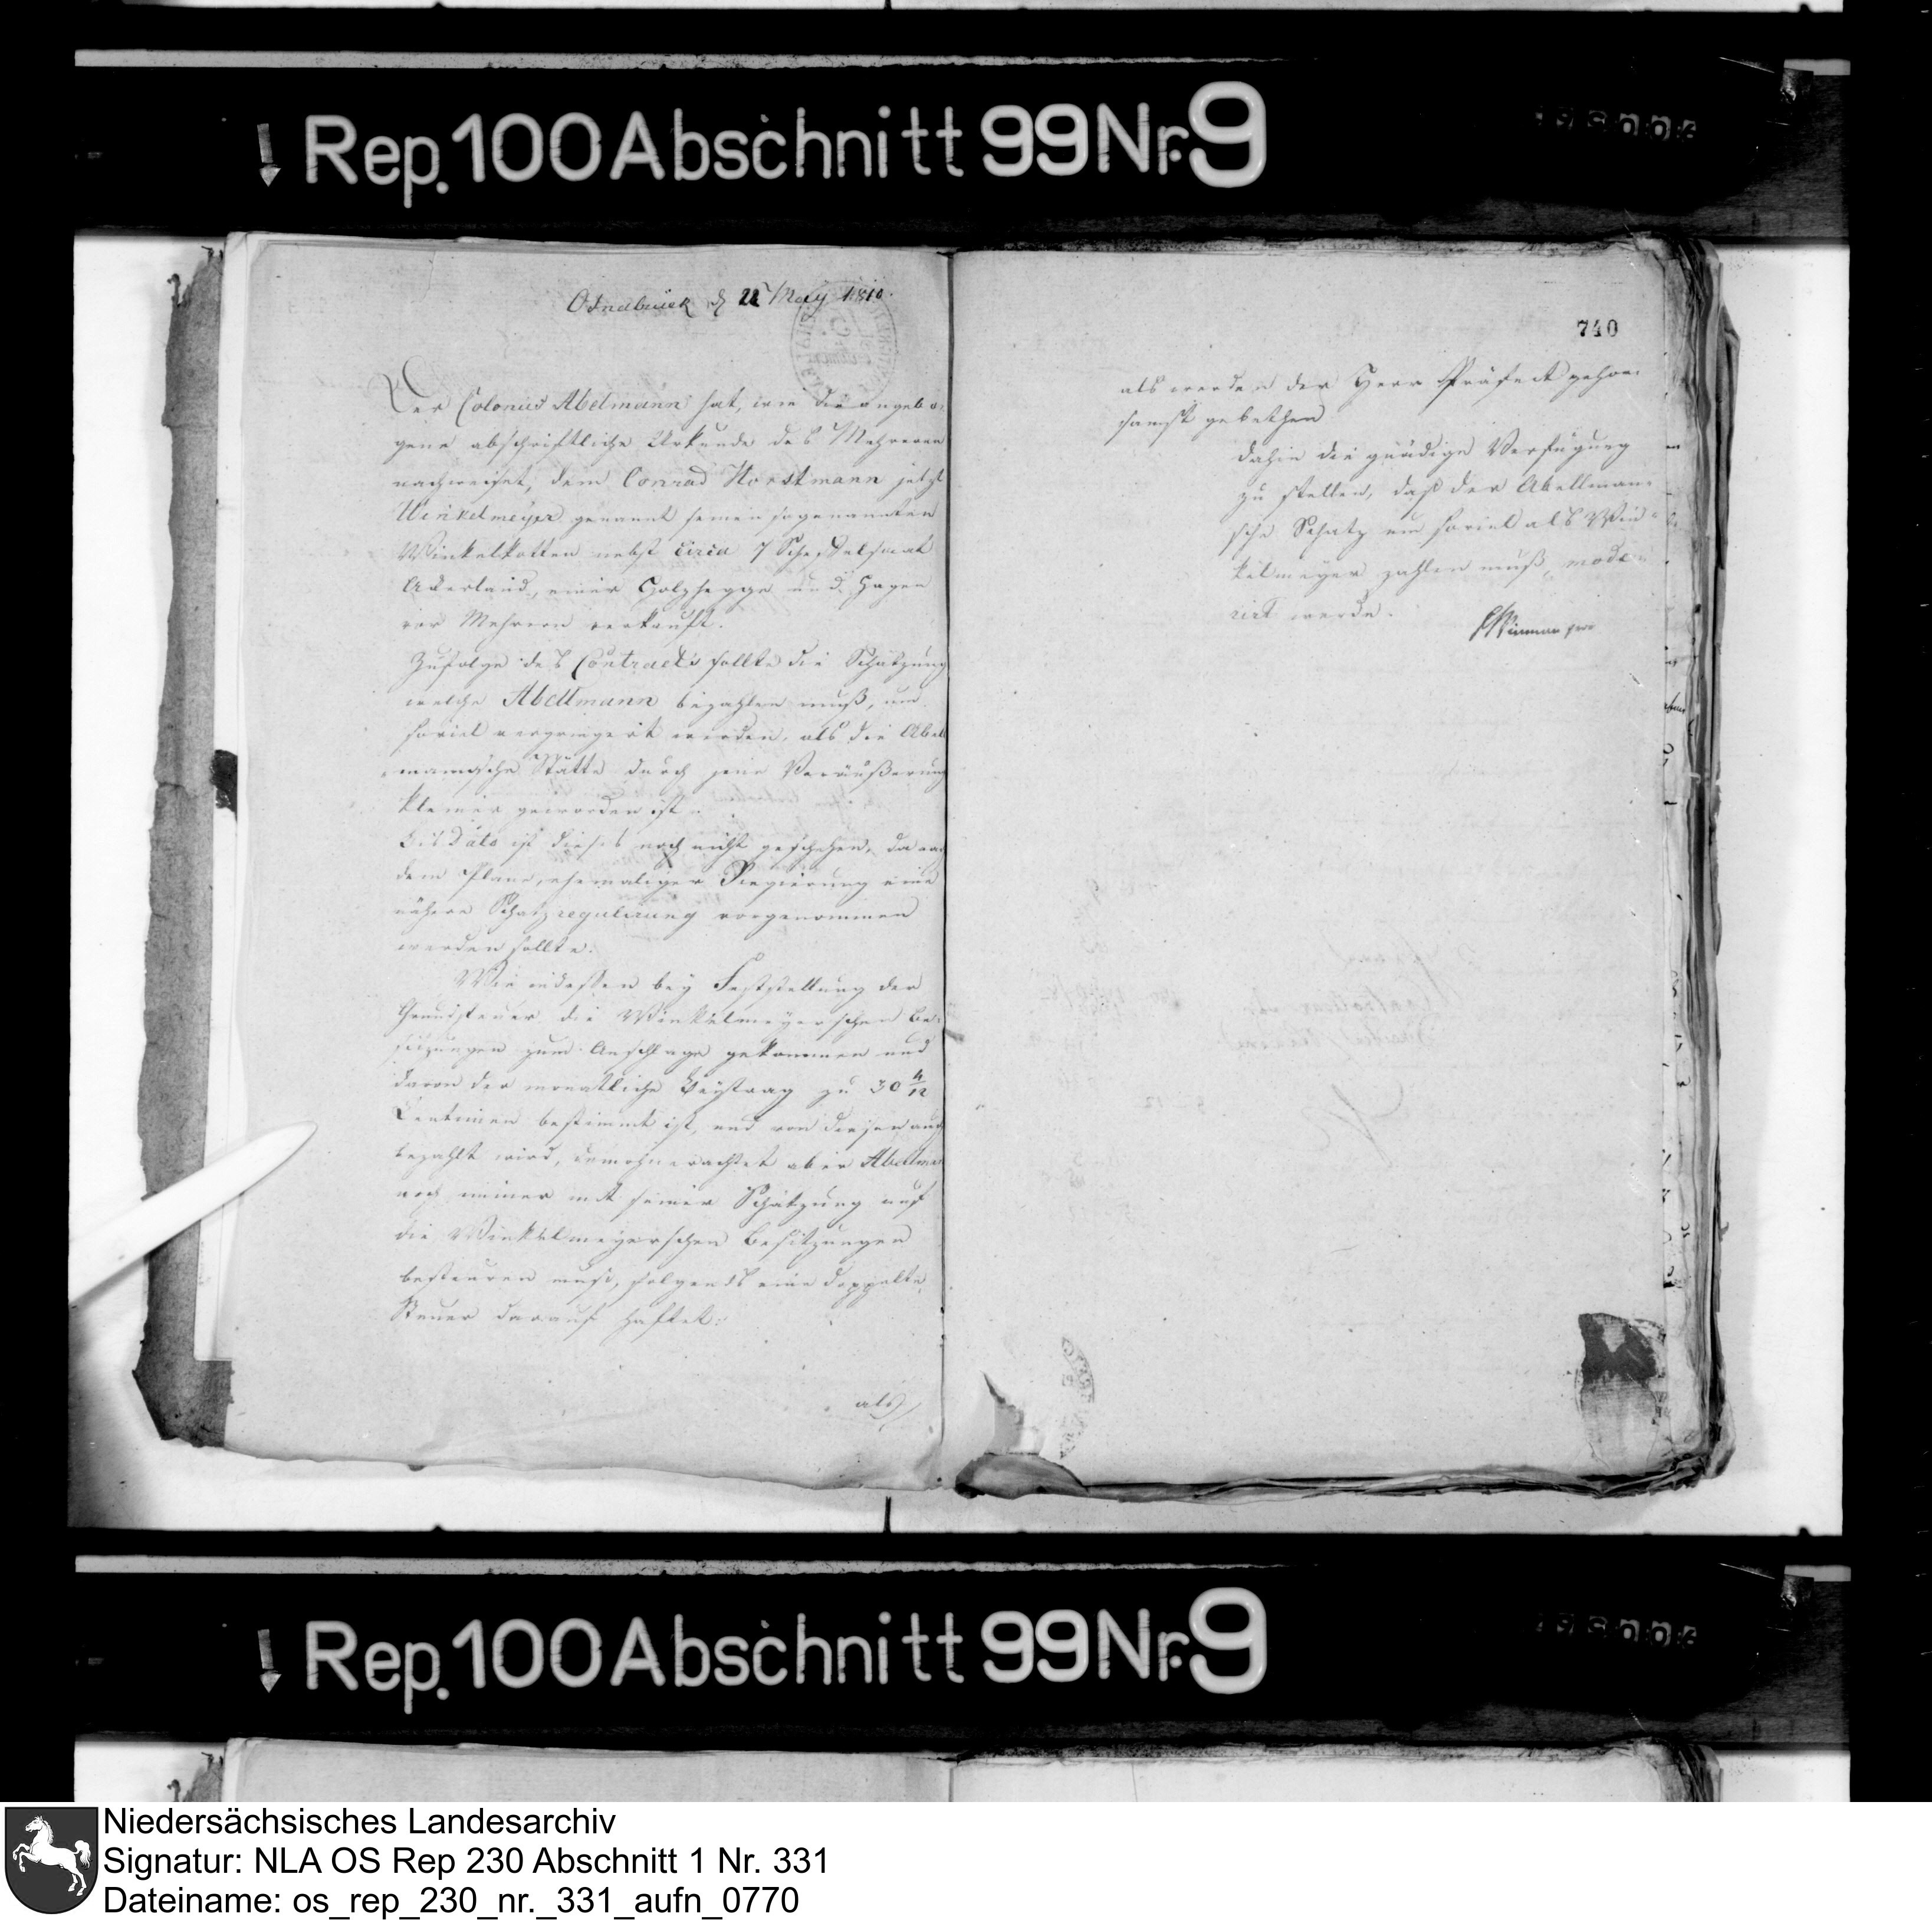 Rep. 100 Abschnitt 99 Nr. 9
Osnabrück d 22 May 1810.
Der Colonus Abelmann hat, wie die angebo-
gene abschriftliche Urkunde des Mehreren
nachweiset, dem Conrad Horstmann jetzt
Winkelmeyer genannt seinen sogenannten
Winkelkotten nebst circa 7 Scheffelsaat
Ackerland, einer Holzhegge und Hagen
vor Mehrern verkauft.
Zufolge des Contracts sollte die Schatzung
welche Abellmann bezahlen muß, um
soviel verringert werden, als die Abel
mannsche Stätte durch jene Veräußerung
kleiner geworden ist.
Bis Dato ist dieses noch nicht geschehen, da nach
dem Plane, ehemaliger Regierung eine
nähere Schatzregulirung vorgenommen
werden sollte.
Wie indessen bey Feststellung der
Grundsteuer die Winkelmeyerschen Be-
sitzungen zum Anschlage gekommen und
davon der monatliche Beytrag zu 30 4/12
Centimen bestimmt ist, und von diesem auch
bezahlt wird, demohnerachtet aber Abellman
noch immer mit seiner Schatzung auf
die Winkelmeyerschen Besitzungen
besteuren muß, folgends eine doppelte
Steuer darauf haftet:
als
740
als werden der Herr Präfect gehor-
samst gebethen
dahin die gnädige Verfügung
zu stellen, daß der Abellman-
sche Schatz um soviel als Win-
kelmeyer zahlen muß, mode-
rirt werde.
Rep. 100 Abschnitt 99 Nr. 9
Niedersächsisches Landesarchiv
Signatur: NLA OS Rep 230 Abschnitt 1 Nr. 331
Dateiname: os_rep_230_nr._331_aufn_0770